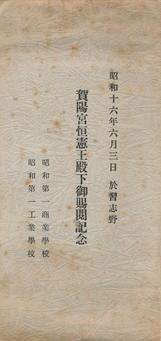 昭和十六年六月三日 於習志野
賀陽宮恒憲王殿下御賜閲記念
昭和第一商業學校
昭和第一工業學校